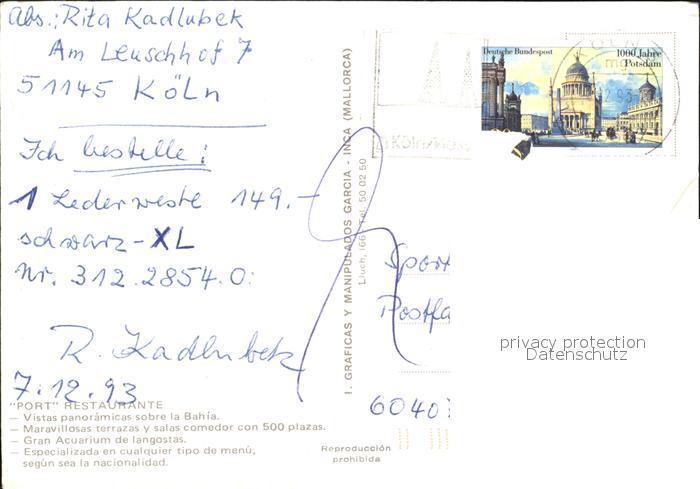 Abs.: Rita Kadlubek
Am Leuschhof 7
51145 Köln
Ich bestelle:
1 Lederweste 149.-
schwarz-XL
Nr. 312.2854.0:
R. Kadlubek
7.12.93
"PORT" RESTAURANTE
— Vistas panorámicas sobre la Bahía.
— Maravillosas terrazas y salas comedor con 500 plazas.
— Gran Acuarium de langostas.
— Especializada en cualquier tipo de menú,
según sea la nacionalidad.
I. GRAFICAS Y MANIPULADOS GARCIA - INCA (MALLORCA)
Lluch, 166 Tel. 50 02 50
Reproducción
prohibida
Deutsche Bundespost
1000 Jahre
Potsdam
12.93
Köln/
Sport
Postfa
6040
privacy protection
Datenschutz